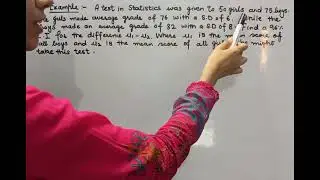 Example :- A test in Statistics was given to 50 girls and 75 boys.
girls made average grade of 76 with a S.D of 6, while the
boys made an average grade of 82 with a SD of 8. Find a 96%
C.I for the difference u₁-u₂. Where u₁ is the mean score of
all boys and u₂ is the mean score of all girls who might
take this test.